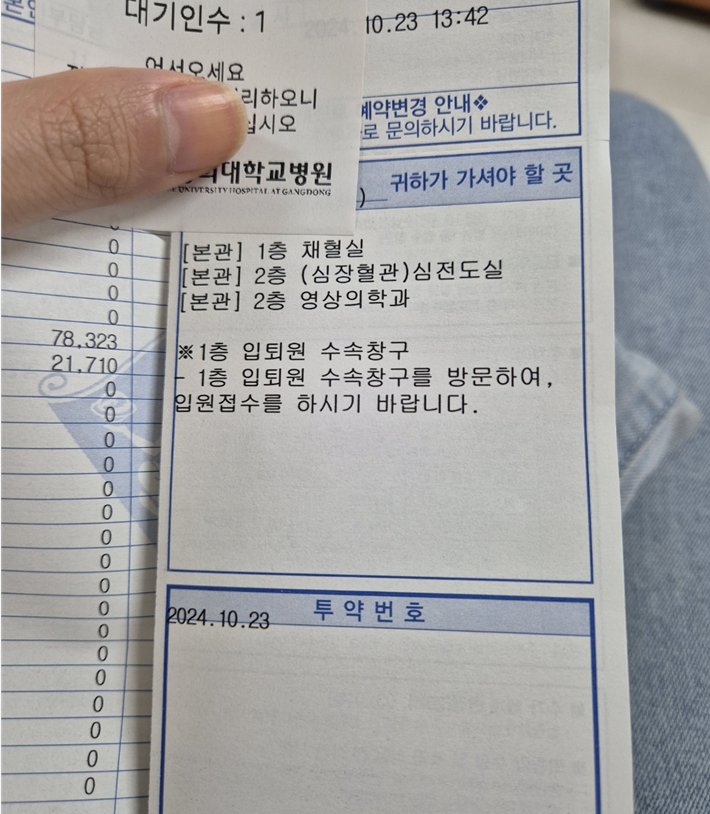 대기인수 : 1
10.23 13:42
어서오세요
리하오니
십시오
예약변경 안내❖
로 문의하시기 바랍니다.
대학교병원
UNIVERSITY HOSPITAL AT GANGDONG
귀하가 가셔야 할 곳
[본관] 1층 채혈실
[본관] 2층 (심장혈관)심전도실
[본관] 2층 영상의학과
※1층 입퇴원 수속창구
- 1층 입퇴원 수속창구를 방문하여,
입원접수를 하시기 바랍니다.
투약번호
2024.10.23
0
0
0
0
78,323
21,710
0
0
0
0
0
0
0
0
0
0
0
0
0
0
0
0
0